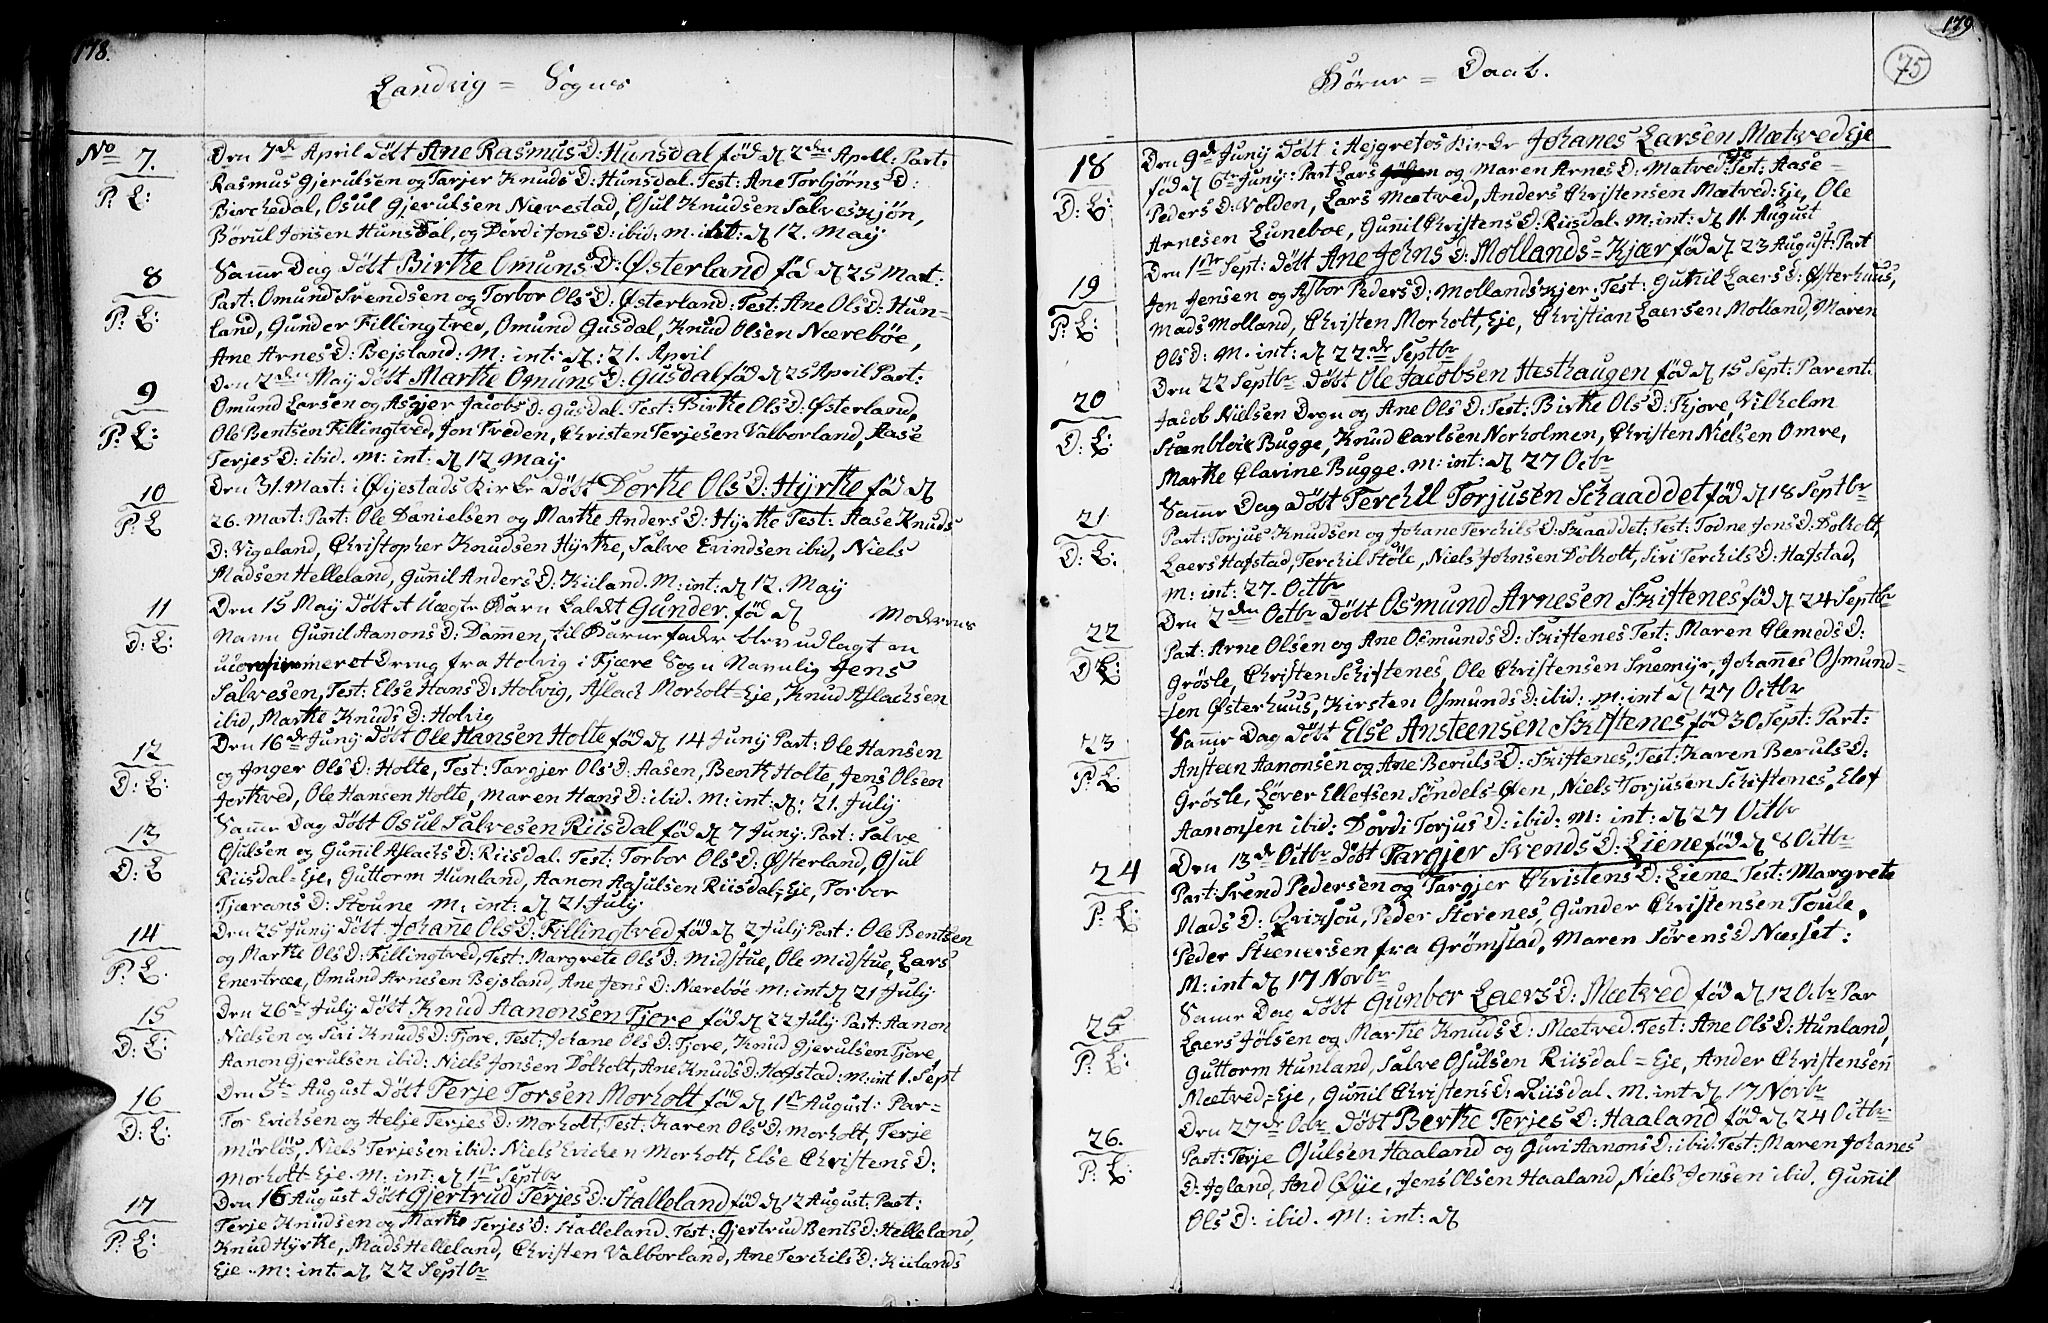 178.
Landvig = Sogns
No 7.
P: L:
Den 7de April döbt Ane Rasmus D: Hunsdal föd d 2den Apell: Part:
Rasmus Gjerulsen og Tarjer Knuds D: Hunsdal. Test: Ane Torbjörns D:
Birchedal, Osul Gjerulsen Nævestad, Osul Knudsen Salveskjön,
Börul Jonsen Hunsdal, og Dordi Jons D: ibid: M. int: d 12. May
8
P: L:
Samme Dag döbt Birthe Omuns D: Østerland föd d 25 Mart:
Part: Omund Svendsen og Torbor Ols D: Østerland: Test: Ane Ols D: Hun-
land, Gunder Fillingtved, Omund Gusdal, Knud Olsen Næreböe,
Ane Arnes D: Bejsland: M: int: d: 21. April
9
P: L:
Den 2den May döbt Marthe Omuns D: Gusdal föd d 25 April Part:
Omund Larsen og Asgjer Jacobs D: Gusdal. Test: Birthe Ols D: Østerland,
Ole Bentsen Fillingtved, Jon Treden, Christen Terjesen Valborland, Aase
Terjes D: ibid. M: int: d 12 May
10
P: L
Den 31. Mart: i Øijestads Kirke döbt Dorthe Ols D: Hyrthe föd d
26. Mart: Part: Ole Danielsen og Marthe Anders D: Hyrthe Test: Aase Knuds
D: Vigeland, Christopher Knudsen Hyrthe, Salve Evindsen ibid, Niels
Madsen Helleland, Gunnil Anders D: Kiiland. M: int: d 12. May
11
D: L:
Den 15 May döbt et Uægte Barn kaldt Gunder. föd d Moderens
Navn Gunnil Aanons D: Dammen, til Barnefader blev udlagt en
Dreng fra Holvig i Fjære Sogn Navnlig Jens
Salvesen, Test: Else Hans D: Holvig, Aslach Morholt=Eje, Knud Aslachsen
ibid, Marthe Knuds D: Holvig
12
D: L:
Den 16de Junij döbt Ole Hansen Holte föd d 14 Junij Part: Ole Hansen
og Jnger Ols D: Holte, Test: Targjer Ols D: Aasen, Benth Holte, Jens Olsen
Jerthved, Ole Hansen Holte, Maren Hans D: ibid. M: int: d: 21. July
13
D: L
Samme Dag döbt Osul Salvesen Riisdal föd d 7 Junij. Part: Salve
Osulsen og Gunnil Aslachs D: Riisdal. Test: Torbor Ols D: Østerland, Osul
Riisdal=Eje, Guttorm Hunland, Aanon Aasulsen Riisdal=Eje, Torbor
Tjærans D: Stoune M: int: d 21 July
14
P: L.
Den 25 Junij döbt Johanne Ols D: Fillingtved föd d 2 Julij Part: Ole Bentsen
og Marthe Ols D: Fillingtved, Test: Margrete Ols D: Midstue, Ole Midstue, Lars
Enertræe, Omund Arnesen Bejsland, Ane Jens D: Næreböe M: int d 21 July
15
D: L:
Den 26de July döbt Knud Aanonsen Tjore föd d 22 July Part: Aanon
Nielsen og Siri Knuds D: Tjore. Test: Johane Ols D: Tjore, Knud Gjerulsen Tjore,
Aanon Gjerulsen ibid: Niels Jonsen Dolholt, Ane Knuds D: Hafstad: M: int 1. Sept
16
D: L:
Den 5te August döbt Terje Torsen Morholt föd d 1ste August: Par=
Tor Erichsen og Helje Terjes D: Morholt, Test: Karen Ols D: Morholt, Terje
Mörlös, Niels Terjesen ibid: Niels Erichen Morholt, Else Christens D:
Morholt-Eje. M: int: d 1ste Septbr
17
P: L:
Den 16 August döbt Gjertrud Terjes D: Stalleland föd d 12 August: Part:
Terje Knudsen og Marthe Terjes D: Stalleland. Test: Gjertrud Bents D: Helleland,
Knud Hyrthe, Mads Helleland, Christen Valborland, Ane Terchils D: Kiilands
Eje. M: int: d 22 Septbr
179
75
Börne = Daab.
18
D: L:
Den 9de Junij döbt i Hejgretos Kirke Johanes Larsen Mætved Eje
föd d 6te Junij: Part Lars og Maren Arnes D: Matved Eje Test: Aase
Peders D: Volden, Lars Mætved, Anders Christensen Mætved: Eje, Ole
Arnesen Luneboe, Gunil Christens D: Riisdal. M: int: d 11. August
19
P: L:
Den 1ste Sept: döbt Ane Johns D: Mollands=Kjær föd d 23 August: Part
Jon Jensen og Asbor Peders D: Mollandskjer: Test: Gunil Laers D: Østerhuus,
Mads Molland, Christen Morholt, Eje, Christian Laersen Molland, Maren
Ols D: M. int: d 22de Septbr
20
D: L:
Den 22 Septbr döbt Ole Jacobsen Hesthaugen föd d 15 Sept: Parent:
Jacob Nielsen Dreng og Ane Ols D: Test: Birthe Ols D: Tjore, Vilhelm
Steenbloic Bugge, Knud Carlsen Norholmen, Christen Nielsen Omre,
Marthe Clavine Bugge. M: int: d 27 Octbr
21
D: L:
Samme Dag döbt Terchil Torjusen Schaaddet föd d 18 Septbr
Part: Torjus Knudsen og Johane Terchils D: Skaaddet: Test: Todne Jons D: Dolholt,
Laers Hafstad, Terchil Støle, Niels Johnsen Dolholt, Siri Terchils D: Hafstad,
M: int: 27. Octbr
22
D L:
Den 2den Octbr döbt Osmund Arnesen Skiftenes föd d 24 Septbr
Part: Arne Olsen og Ane Osmunds D: Skiftenes Test: Maren Clemeds D:
Grösle, Christen Schiftenes, Ole Christensen Snemyr, Johannes Osmund=
=sen Østerhuus, Kirsten Osmunds D: ibid: M: int d 27 Octbr
23
P: L:
Samme Dag döbt Else Ansteensen Skiftenes föd 30 Sept: Part:
Ansteen Aanonsen og Ane Beruls D: Skiftenes, Test: Karen Beruls D:
Grösle, Löver Ellefsen Söndels Øen, Niels Torjusen Schiftenes, Elef
Aanonsen ibid: Dordi Torjus D: ibid: M: int: d 27 Octbr
24
P: L:
Den 13de Octbr döbt Targjer Svends D: Liene föd d 8 Octbr
Part: Svend Pedersen og Targjer Christens D: Liene Test: Margrete
Mads D: Qvixsou, Peder Storenes, Gunder Christensen Toule,
Peder Steenersen fra Grömstad, Maren Sörens D Næsset:
M: int d 17 Novbr
25
P: L:
Samme Dag döbt Gunbor Laers D: Mætved föd d 12 Octbr Par
Laers Jölsen og Marthe Knuds D: Mætved. Test: Ane Ols D: Hunland,
Guttorm Hunland, Salve Osulsen Riisdal=Eje, Ander Christensen
Mætved-Eje, Gunnil Christens D: Riisdal. M. int d 17 Novbr
26.
P: L:
Den 27de Octbr döbt Berthe Terjes D: Haaland föd d 24 Octbr
Part: Terje Osulsen Haaland og Guri Aanons D: ibid: Test: Maren Johanes
D: Jgland, And Öije, Jens Olsen Haaland, Niels Jensen ibid. Gunnil
Ols D: ibid. M: int: d